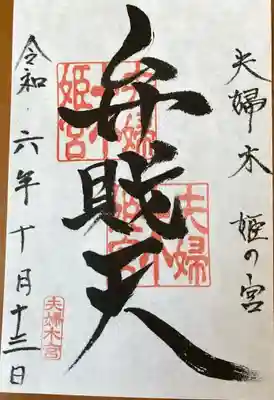 夫婦木 姫の宮
弁財天
令和 六年 十月 十三日
夫婦木
姫宮
夫婦木
姫宮
夫婦木宮